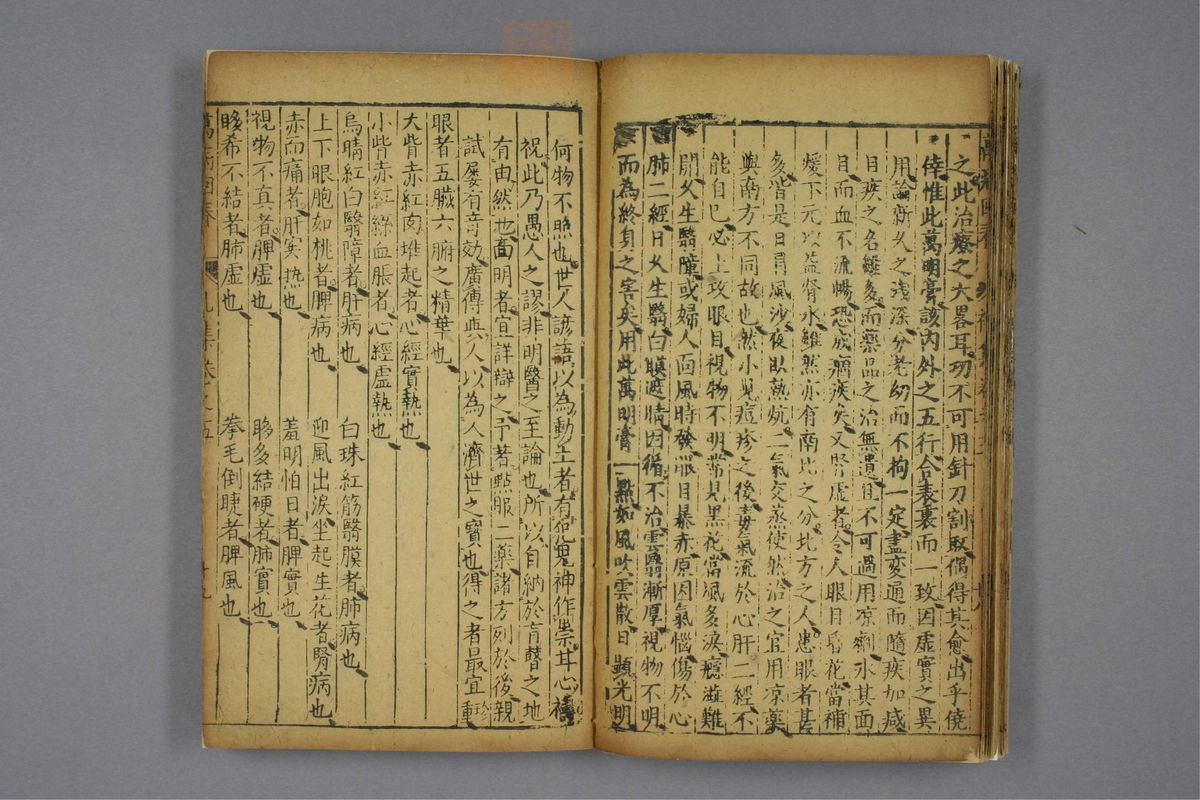 之此治療之大畧耳切不可用針刀割取偶得其愈出乎僥
倖惟此萬明膏該內外之五行合表裏而一致因虛實之異
用論新久之淺深分老幼而不拘一定盡変通而隨疾加减
目疾之名雖多而藥品之治無遺且不可過用凉劑氷其面
目而血不流暢恐成痼疾矣又腎虛者令人眼目昏花當補
煖下元以益腎水雖然亦有南北之分北方之人患眼者甚
多皆是日冒風沙夜臥熱炕二氣交蒸使然治之宜用凉藥
與南方不同故也然小兒痘疹之後毒氣流於心肝二經不
能自已必上攻眼目視物不明常見黑花當風多淚癮澁難
開久生翳障或婦人面風時發眼目暴赤原因氣惱傷於心
肺二經日久生翳白膜遮睛因循不治雲翳漸厚視物不明
而為終身之害矣用此萬明膏一點如風吹雲散日顕光明
何物不照也世人諺語以為動土者有犯鬼神作祟甘心禱
祝此乃愚人之謬非明醫之至論也所以自納於盲瞽之地
有由然也高明者宜詳辯之予著點服二藥諸方列於後親
試屢有竒効廣傳與人以為人濟世之寶也得之者最宜珍重
眼者五臟六腑之精華也
大眥赤紅肉堆起者心經實熱也
小眥赤紅絲血脹者心經虛熱也
烏睛紅白翳障者肝病也 白珠紅筋翳膜者肺病也
上下眼胞如桃者脾病也 迎風出淚坐起生花者腎病也
赤而痛者肝实热也 羞明怕日者脾實也
視物不真者脾虛也 眵多結硬者肺實也
眵希不結者肺虛也 拳毛倒睫者脾風也